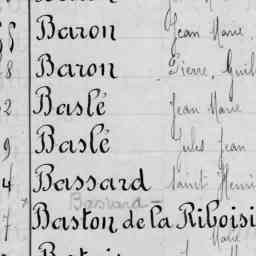 Baron Jean Marie
8 Baron Pierre, Guil
2 Baslé Jean Marie
9 Baslé Jules Jean
4 Bassard Saint Henri
Bassard =
7 Baston de la Riboisi
Marie